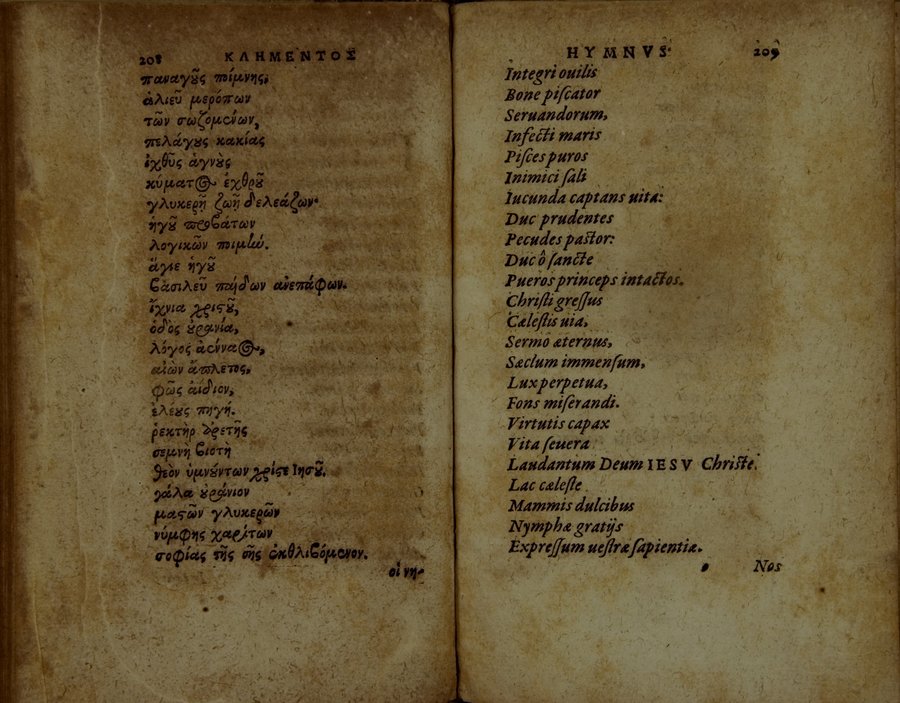 208 ΚΛΗΜΕΝΤΟΣ
παναγοῦς ποίμνης,
ἁλιεῦ μερόπων
τῶν σωζομένων,
πελάγους κακίας
ἰχθῦς ἁγνοὺς
κύματος ἐχθροῦ
γλυκερῇ ζωῇ δελεάζων·
ἡγοῦ προβάτων
λογικῶν ποιμήν.
ἅγιε ἡγοῦ
βασιλεῦ παίδων ἀνεπάφων.
ἴχνια χριστοῦ,
ὁδὸς οὐρανία,
λόγος ἀένναος,
αἰὼν ἄπλετος,
φῶς ἀίδιον,
ἐλέους πηγή.
ῥεκτὴρ ἀρετῆς
σεμνὴ βιοτὴ
θεὸν ὑμνούντων χριστὲ Ιησοῦ.
γάλα οὐράνιον
μαστῶν γλυκερῶν
νύμφης χαρίτων
σοφίας τῆς σῆς ἐκθλιβόμενον.
οἱ νη-
HYMNVS· 209
Integri ouilis
Bone piſcator
Seruandorum,
Infecti maris
Piſces puros
Inimici ſali
Iucunda captans uita:
Duc prudentes
Pecudes pastor:
Duc ô ſancte
Pueros princeps intactos.
Chriſti greſſus
Cælestis uia,
Sermo æternus,
Sæclum immenſum,
Lux perpetua,
Fons miſerandi.
Virtutis capax
Vita ſeuera
Laudantum Deum IESV Christe.
Lac cæleſte
Mammis dulcibus
Nymphæ gratijs
Expreſſum ueſtræ ſapientiæ.
Nos